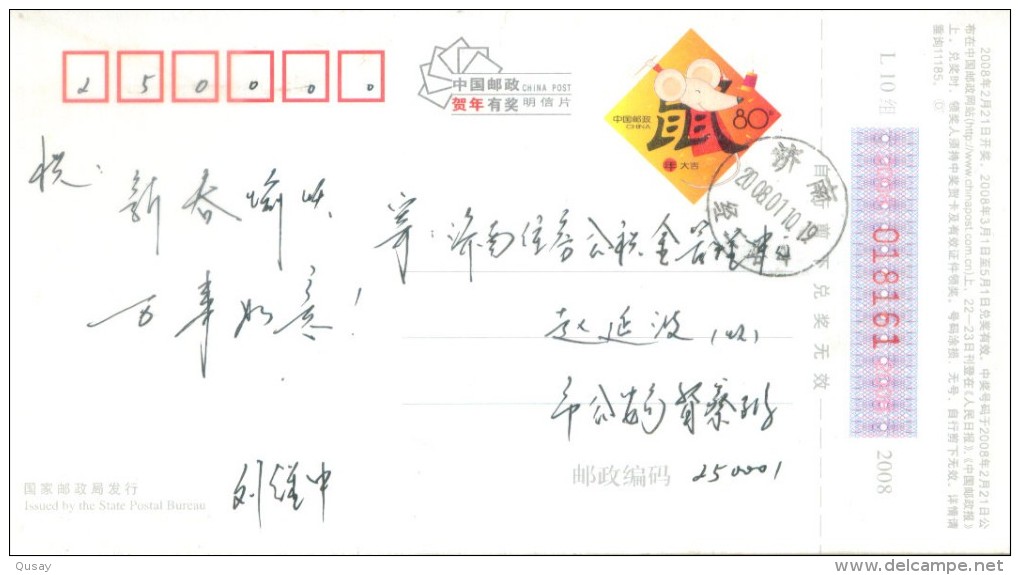 250000
中国邮政 CHINA POST
贺年有奖明信片
中国邮政
CHINA
鼠
80分
大吉
济南
2008.01.10.19
祝：
新春愉快
万事如意！
寄：济南住房公积金管理中心
赵延波（收）
市公安局
刘继中
邮政编码 250001
国家邮政局发行
Issued by the State Postal Bureau
自行剪下兑奖无效
L 10组
018161
2008
2008年2月21日开奖。2008年3月1日至5月1日兑奖有效。中奖号码于2008年2月21日公
布在中国邮政网站(http://www.chinapost.com.cn)上，22—23日刊登在《人民日报》、《中国邮政报》
上。兑奖时，领奖人须持中奖贺卡及有效证件领奖。号码涂损、无号、自行剪下无效，详情请
查询11185。
Qusay
delcampe.net